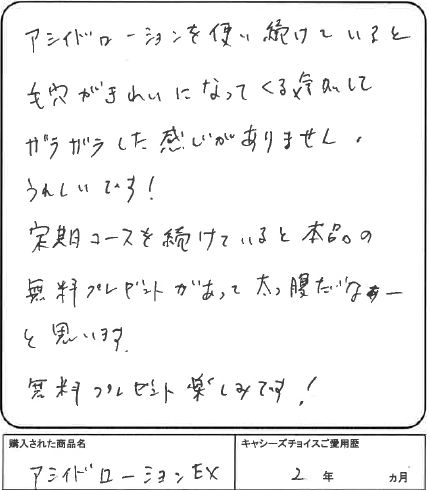 アシィドローションを使い続けていると
毛穴がきれいになってくる気がして
ガラガラした感じがありません。
うれしいです!
定期コースを続けていると本品の
無料プレゼントがあって太っ腹だなぁー
と思います。
無料プレゼント楽しみです!
購入された商品名
キャシーズチョイスご愛用歴
アシィドローションEX
2 年 ヵ月